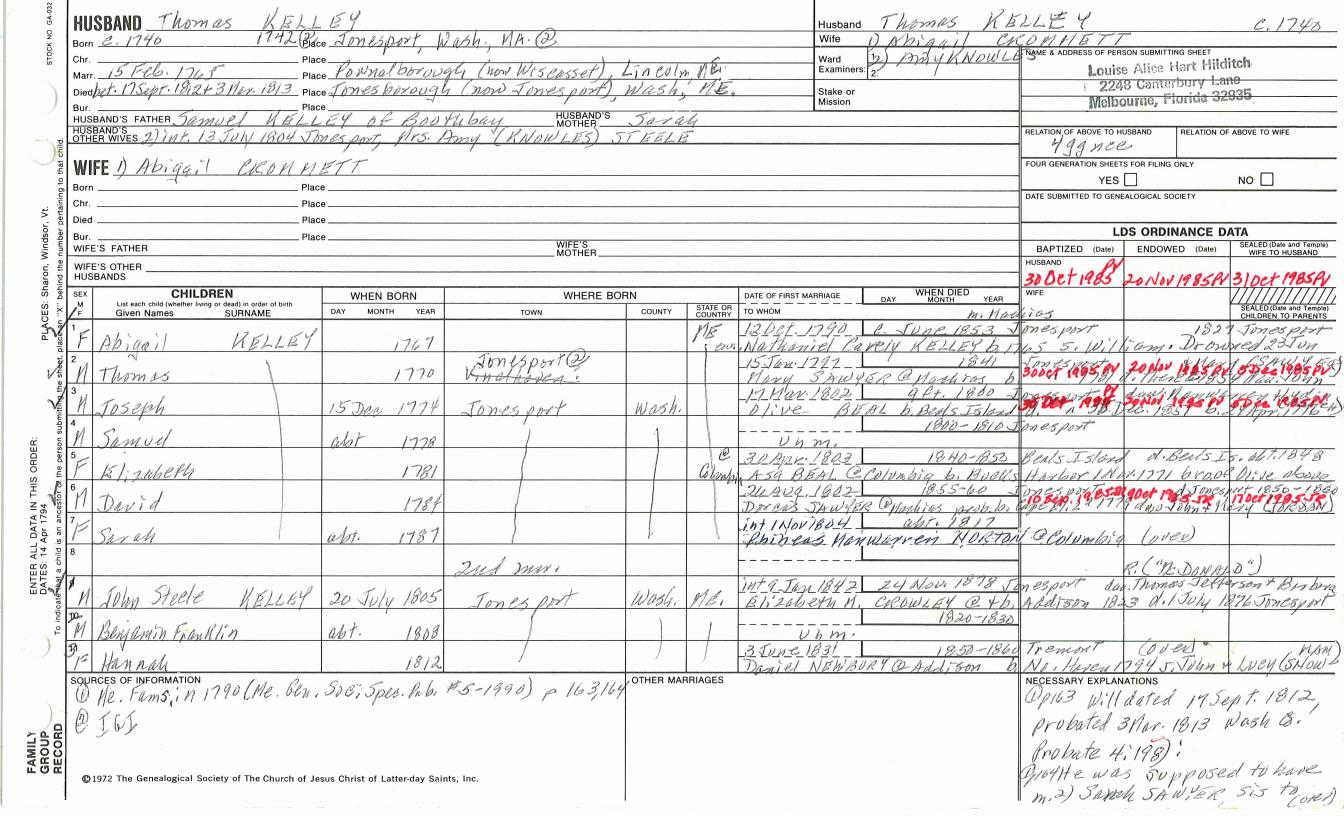 STOCK NO. GA-032
HUSBAND Thomas KELLEY
Born c. 1740 1742② Place Jonesport, Wash., MA. ②
Chr. Place
Marr. 15 Feb. 1765 Place Pownalborough (now Wiscasset), Lincoln, ME.
Died bet. 17 Sept. 1812 + 3 Mar. 1813 Place Jonesborough (now Jonesport), Wash., ME.
Bur. Place
HUSBAND'S FATHER Samuel KELLEY of Boothbay HUSBAND'S MOTHER Sarah
HUSBAND'S OTHER WIVES 2) int. 13 July 1804 Jonesport, Mrs. Amy (KNOWLES) STEELE
Husband Thomas KELLEY c. 1740
Wife 1) Abigail CROMMETT
Ward 2) Amy KNOWLES
Examiners: 1. 2.
Stake or Mission
NAME & ADDRESS OF PERSON SUBMITTING SHEET
Louise Alice Hart Hilditch
2248 Canterbury Lane
Melbourne, Florida 32935
RELATION OF ABOVE TO HUSBAND RELATION OF ABOVE TO WIFE
4ggnce
FOUR GENERATION SHEETS FOR FILING ONLY
YES NO
DATE SUBMITTED TO GENEALOGICAL SOCIETY
WIFE 1) Abigail CROMMETT
Born Place
Chr. Place
Died Place
Bur. Place
WIFE'S FATHER WIFE'S MOTHER
WIFE'S OTHER HUSBANDS
LDS ORDINANCE DATA
BAPTIZED (Date) ENDOWED (Date) SEALED (Date and Temple) WIFE TO HUSBAND
HUSBAND
30 Oct 1985 PV 20 Nov 1985 PV 31 Oct 1985 PV
WIFE
SEALED (Date and Temple) CHILDREN TO PARENTS
SEX M F
CHILDREN
List each child (whether living or dead) in order of birth
Given Names SURNAME
WHEN BORN
DAY MONTH YEAR
WHERE BORN
TOWN COUNTY STATE OR COUNTRY
DATE OF FIRST MARRIAGE
TO WHOM
WHEN DIED
DAY MONTH YEAR
m. Machias
1 F Abigail KELLEY 1767 ME 12 Oct. 1790 c. June 1853 Jonesport 1827 Jonesport
Nathaniel KELLEY b. 1765 s. William. Drowned 23 Jun
2 M Thomas 1770 Jonesport② Vinalhaven 15 Jan. 1797 1841 Jonesport
Mary SAWYER @ Machias b.
30 Oct 1985 PV 20 Nov 1985 PV 5 Dec 1985 PV
3 M Joseph 15 Dec 1774 Jonesport Wash. 17 Mar. 1802 Jonesport
Olive BEAL b. Beals Island
30 Oct 1985 PV 20 Nov 1985 PV 5 Dec 1985 PV
4 M Samuel abt 1778 1800-1810 Jonesport
Unm.
5 F Elizabeth 1781 @ Columbia 30 Apr. 1803 1840-1853 Beals Island d. Beals Is. abt. 1848
Asa BEAL @ Columbia b. Harbor 1 Nov. 1771 bro of Olive above
6 M David 1784 26 Aug. 1802 1855-60 Jonesport d. Jonesport 1850-1860
Dorcas SAWYER @ Machias prob. b. dau John + Mary (JORDAN)
7 F Sarah abt. 1787 int 1 Nov 1804 abt. 1817
Phineas NORTON @ Columbia (over)
8
2nd mar.
R. ("McDONALD")
9 M John Steele KELLEY 20 July 1805 Jonesport Wash. ME. int 9 Jan 1842 24 Nov. 1878 Jonesport dau. Thomas Jefferson + Barbara
Elizabeth M. CROWLEY @ + b. Addison 1823 d. 1 July 1876 Jonesport
10 M Benjamin Franklin abt. 1808 1820-1830
Unm.
11 F Hannah 1812 3 June 1831 1850-1860 Tremont (over) MAN)
Daniel NEWBURY @ Addison b. No. Haven 1794 s. John + Lucy (SNOW-
SOURCES OF INFORMATION
① Me. Fams. in 1790 (Me. Gen. Soc. Spec. Pub. #5-1990) p 163,164
② IGI
OTHER MARRIAGES
NECESSARY EXPLANATIONS
① p163 Will dated 17 Sept. 1812,
probated 3 Mar. 1813 Wash Co.
Probate 4:198):
① p164 He was supposed to have
m. 2) Sarah SAWYER, sis to (over)
©1972 The Genealogical Society of The Church of Jesus Christ of Latter-day Saints, Inc.
FAMILY GROUP RECORD
ENTER ALL DATA IN THIS ORDER:
DATES: 14 Apr 1794
PLACES: Sharon, Windsor, Vt.
To indicate that a child is an ancestor of the person submitting the sheet, place an "X" behind the number pertaining to that child.